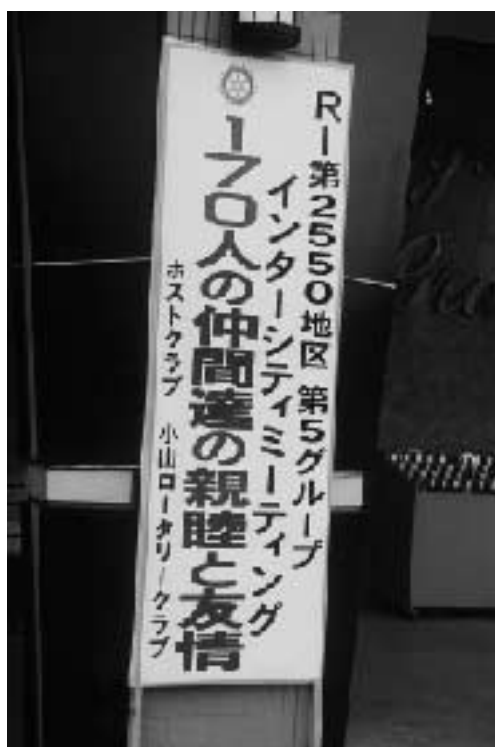 RI第2550地区 第5グループ
インターシティミーティング
170人の仲間達の親睦と友情
ホストクラブ 小山ロータリークラブ